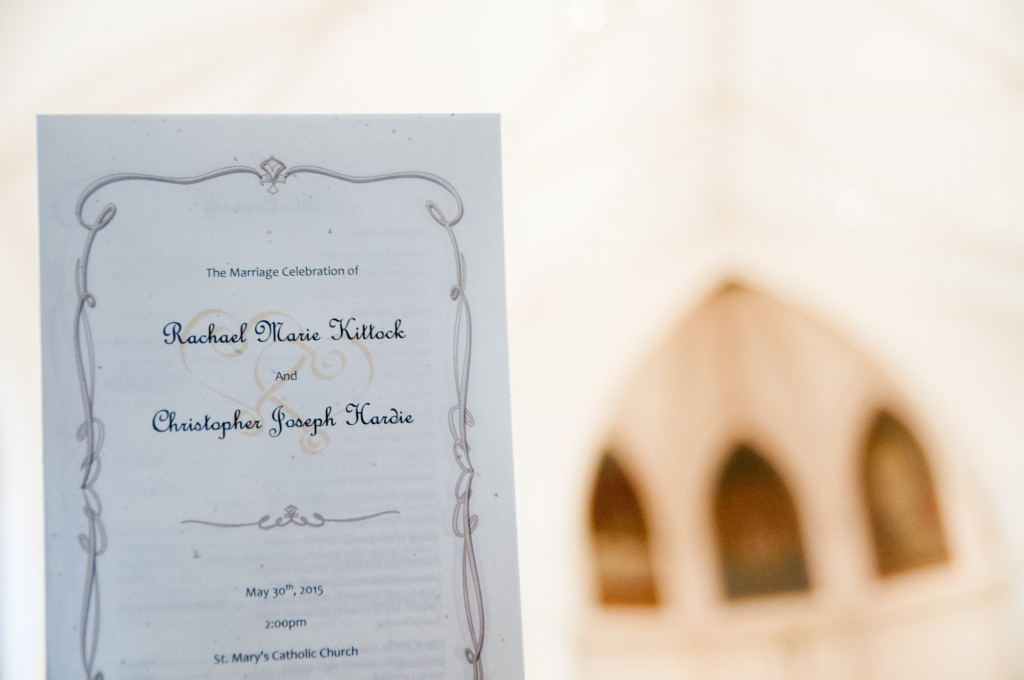 The Marriage Celebration of
Rachael Marie Kittock
And
Christopher Joseph Hardie
May 30th, 2015
2:00pm
St. Mary's Catholic Church